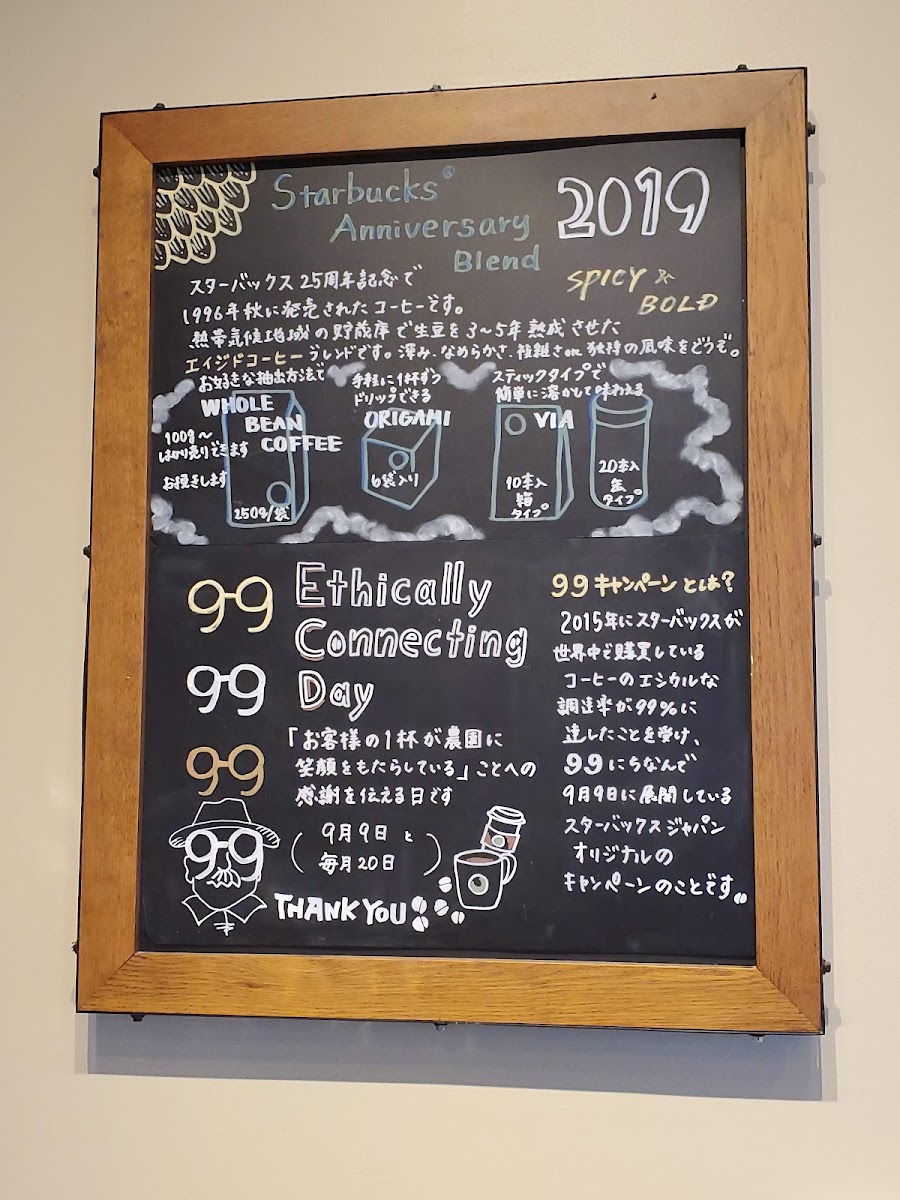 Starbucks®
Anniversary
Blend
2019
SPICY &
BOLD
スターバックス 25周年記念で
1996年秋に発売されたコーヒーです。
熱帯気候地域の貯蔵庫で生豆を3~5年熟成させた
エイジドコーヒーブレンドです。深み、なめらかさ、複雑さ 独特の風味をどうぞ。
お好きな抽出方法で
WHOLE
BEAN
COFFEE
100g~
はかり売りできます
お挽きします
250g/袋
手軽に1杯ずつ
ドリップできる
ORIGAMI
6袋入り
スティックタイプで
簡単に溶かして味わえる
VIA
10本入
箱
タイプ
20本入
缶
タイプ
99
99
99
Ethically
Connecting
Day
「お客様の1杯が農園に
笑顔をもたらしている」ことへの
感謝を伝える日です
(9月9日と
毎月20日)
99
THANK YOU
99キャンペーンとは?
2015年にスターバックスが
世界中で購買している
コーヒーのエシカルな
調達率が99%に
達したことを受け、
99にちなんで
9月9日に展開している
スターバックスジャパン
オリジナルの
キャンペーンのことです。